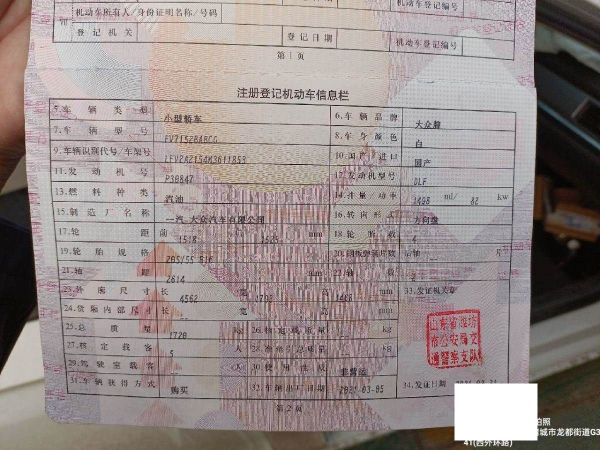 机动车所有人/身份证明名称/号码
机动车登记编号
登记机关
登记日期
机动车登记编号
第1页
注册登记机动车信息栏
5.车辆类型 小型轿车 6.车辆品牌 大众牌
7.车辆型号 FV7152BABCG 8.车身颜色 白
9.车辆识别代号/车架号 LFV2A2154M3611853 10.国产/进口 国产
11.发动机号 P38847 12.发动机型号 DLF
13.燃料种类 汽油 14.排量/功率 1498 ml/ 82 kw
15.制造厂名称 一汽-大众汽车有限公司 16.转向形式 方向盘
17.轮距 前 1518 1525 mm 18.轮胎数 4
19.轮胎规格 205/55 R16 20.钢板弹簧片数 后轴
21.轴距 2614 22.轴数 2
23.外廓尺寸 长 4562 宽 高 mm 33.发证机关章
24.货厢内部尺寸 长 宽 高 mm
25.总质量 1720 kg 26.核定载质量 kg
27.核定载客 5 人 28.准牵引总质量 kg
29.驾驶室载客 人 30.使用性质 非营运
31.车辆获得方式 购买 32.车辆出厂日期 2021-03-05 34.发证日期
山东省潍坊
市公安局交
通警察支队
第2页
拍照
城市龙都街道G3
41(西外环路)